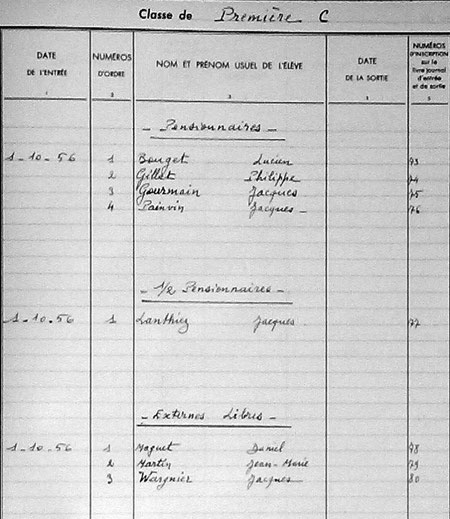 Classe de Première C
DATE DE L'ENTRÉE NUMÉROS D'ORDRE NOM ET PRÉNOM USUEL DE L'ÉLÈVE DATE DE LA SORTIE NUMÉROS D'INSCRIPTION sur le livre journal d'entrée et de sortie
1 2 3 4 5
- Pensionnaires -
1-10-56 1 Bouget Lucien 73
2 Gillet Philippe 74
3 Gourmain Jacques 75
4 Painvin Jacques - 76
- 1/2 Pensionnaires -
1-10-56 1 Lanthiez Jacques 77
- Externes Libres -
1-10-56 1 Maquet Daniel 78
2 Martin Jean-Marie 79
3 Wargnier Jacques 80